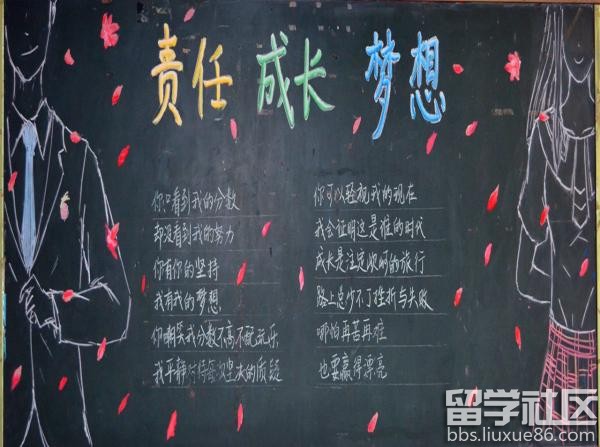 责任 成长 梦想
你只看到我的分数
却没看到我的努力
你有你的坚持
我有我的梦想
你嘲笑我分数不高不配玩乐
我平静对待每次坚决的质疑
你可以轻视我的现在
我会证明这是谁的时代
成长是注定的旅行
路上总少不了挫折与失败
哪怕再苦再难
也要赢得漂亮
留学社区
bbs.liuxue86.com